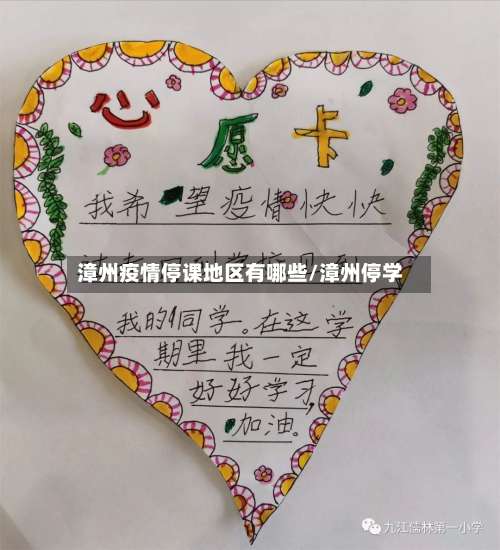 心愿卡
我希望疫情快快
漳州疫情停课地区有哪些/漳州停学
我的同学。在这学
期里我一定
好好学习,
加油。
九江儒林第一小学